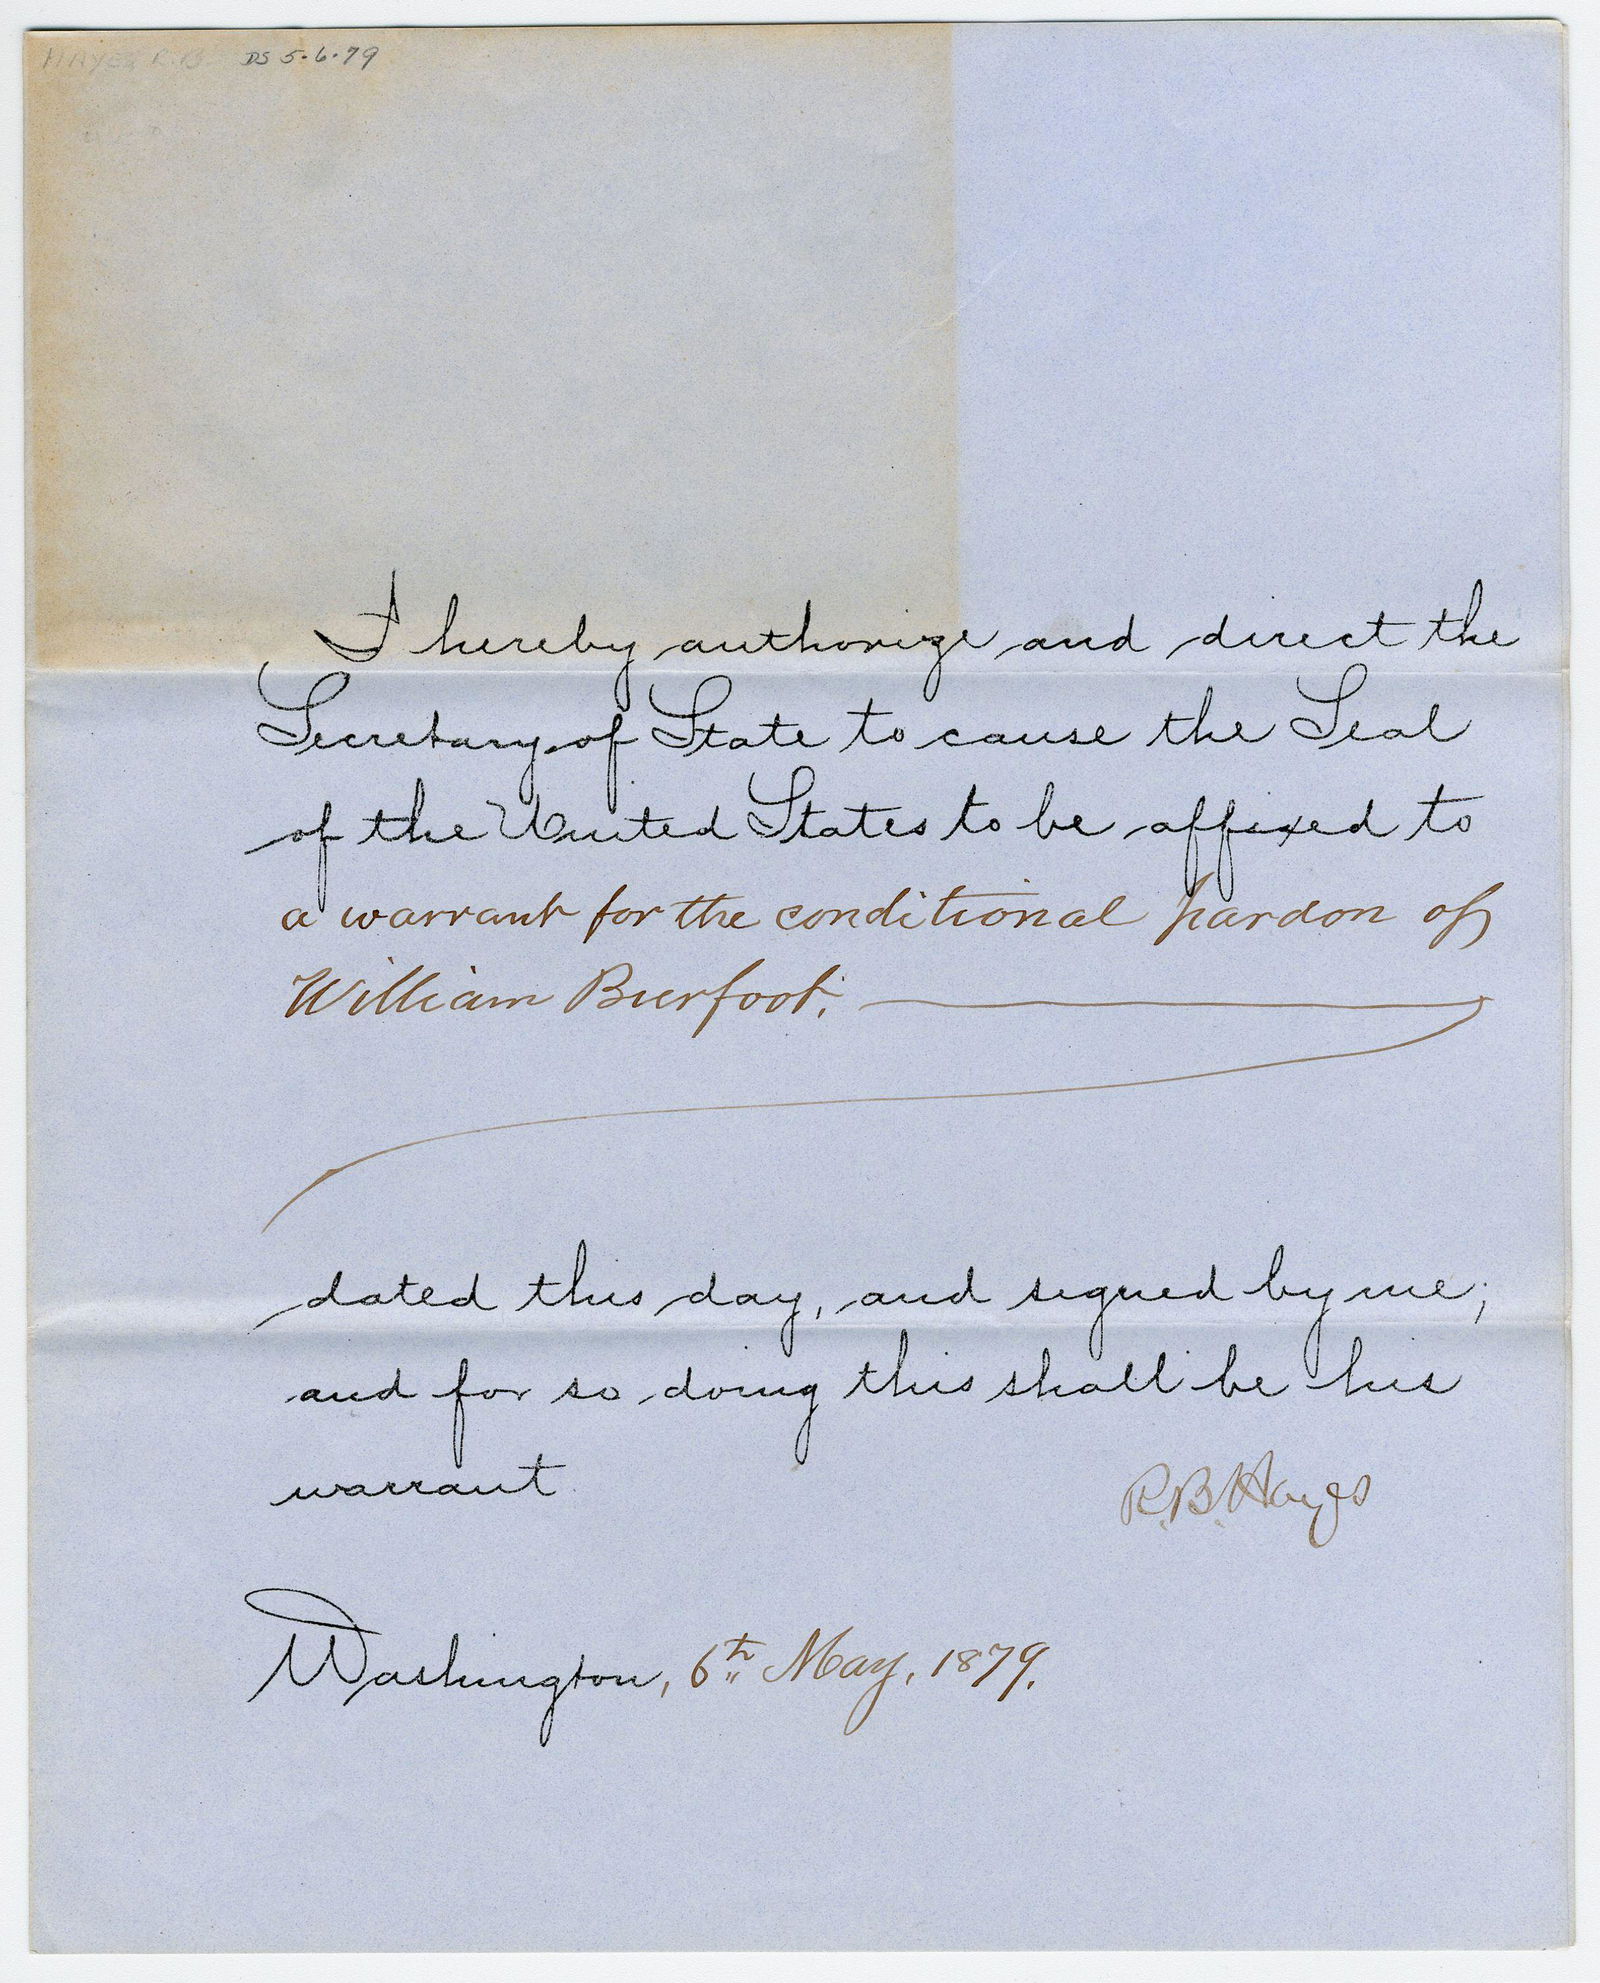 HAYES R.B. DS 5.6.79
I hereby authorize and direct the
Secretary of State to cause the Seal
of the United States to be affixed to
a warrant for the conditional pardon of
William Bierfoot;
dated this day, and signed by me;
and for so doing this shall be his
warrant
R.B. Hayes
Washington, 6th May, 1879.